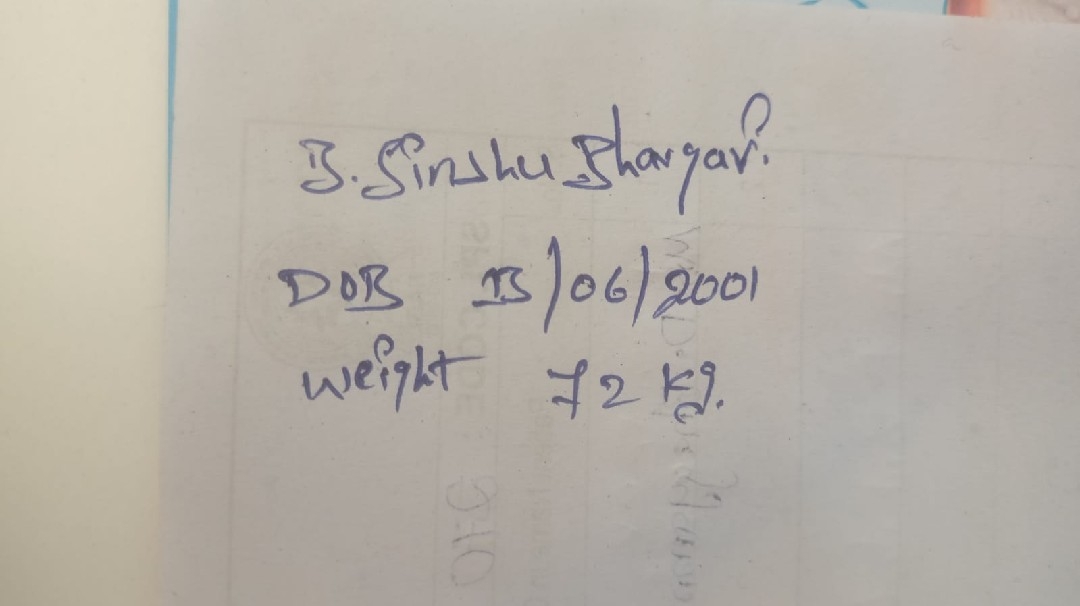 B. Sirishu Bhargavi.
DOB 13/06/2001
weight 72 kg.